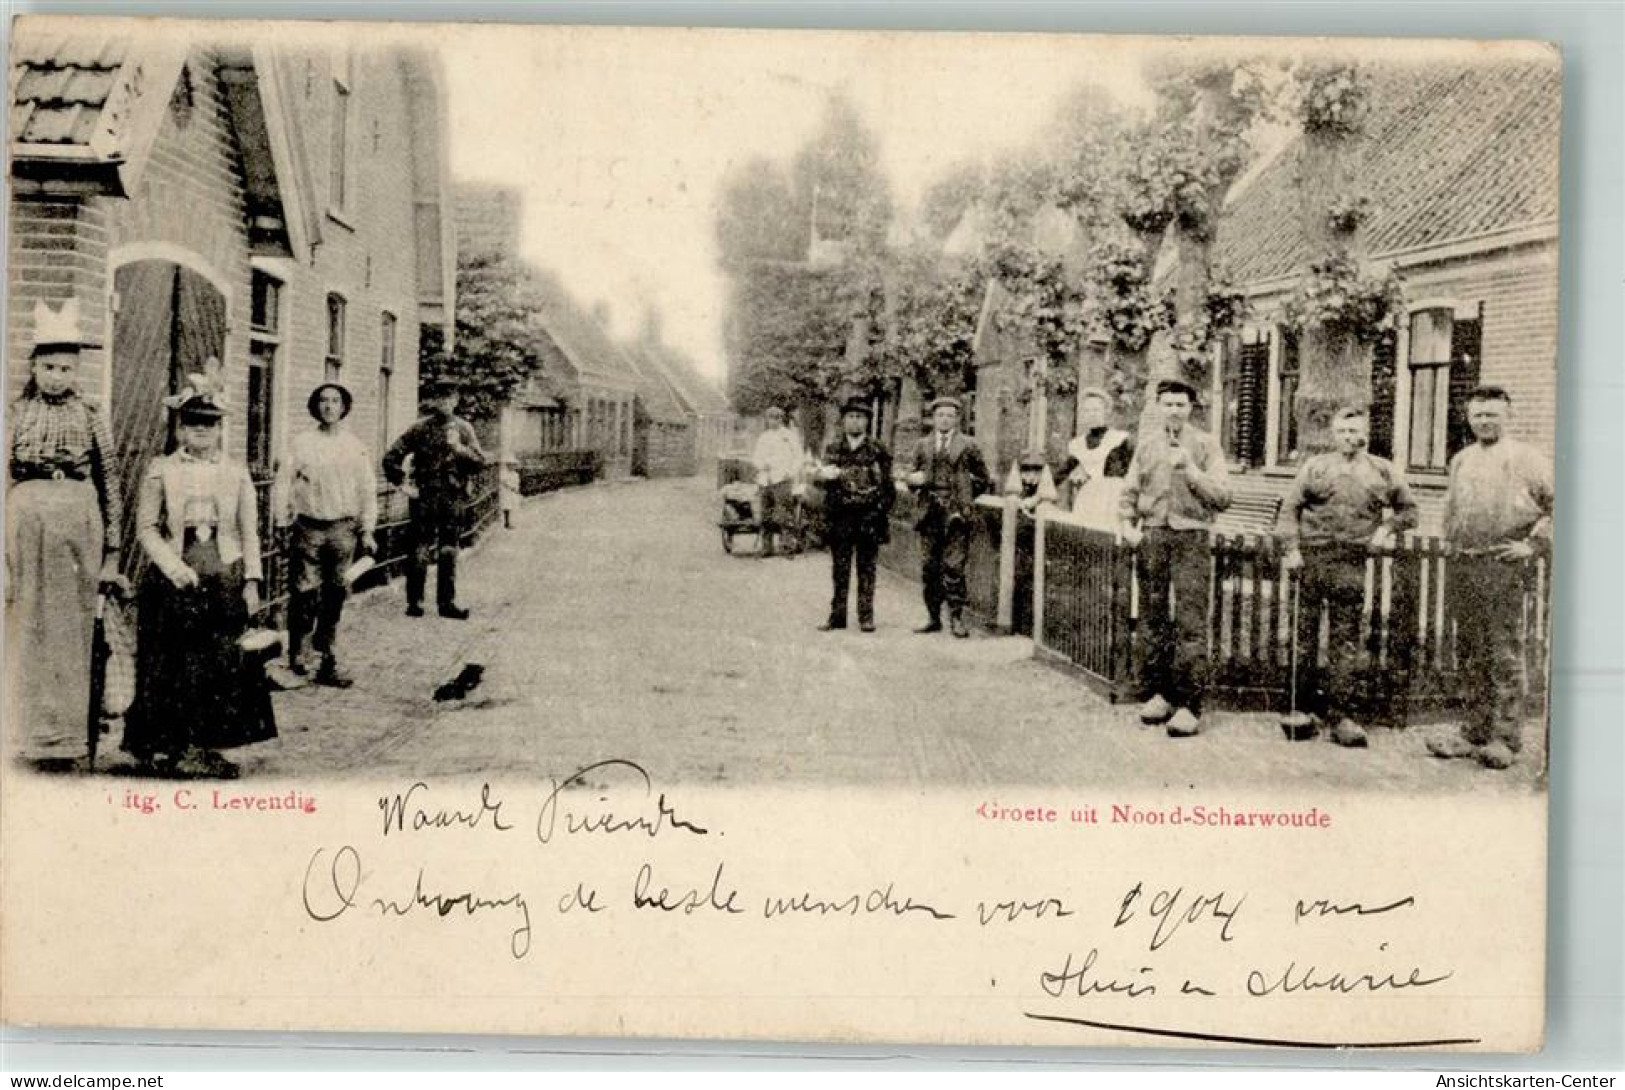 itg. C. Levendig
Groete uit Noord-Scharwoude
Waarde Vriendin.
Ontvang de beste wenschen voor 1904 van
en Marie
Ansichtskarten-Center